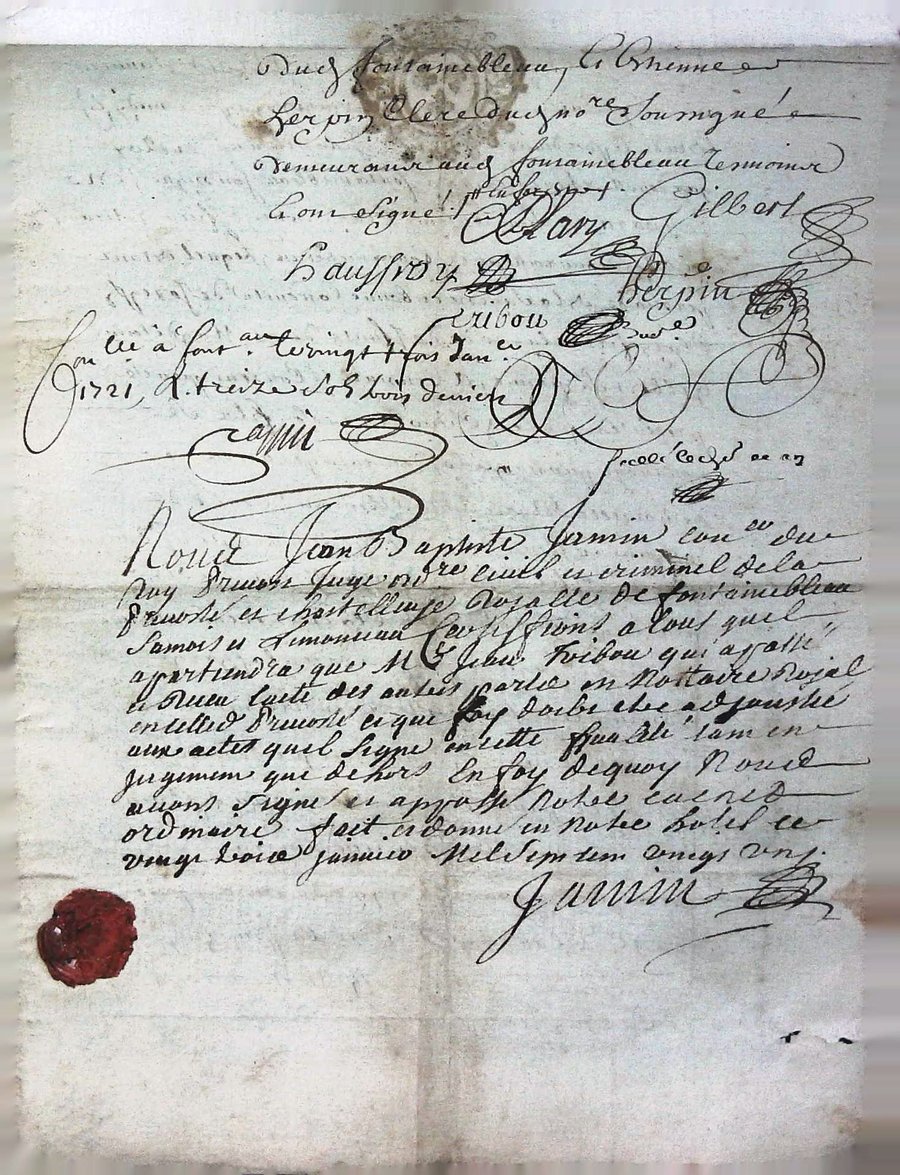 dud fontainebleau, et Etienne
herpin Clerc dud no.re Soussigné
demeurans aud fontainebleau temoins
et ont signé
Clary Gilbert
haussroy herpin
Tribou
Con.lle a font.au le vingt trois Jan.er
1721, R. treize sols trois deniers
Jamin
scellé led jour et an
Nous Jean Baptiste Jamin con.er du
Roy Prevost Juge ord.re civil et criminel de la
Prevosté et chastellenie Royalle de fontainebleau
Samois et Certiffions a tous quil
apartiendra que M.e Jean Tribou qui a passé
et Receu lacte des autres parts est Nottaire Royal
en lad Prevosté et que foy doibt estre adjoustée
aux actes quil signe en cette qualité tant en
jugement que dehors En foy dequoy Nous
avons signé et apposé Notre cachet
ordinaire fait et donné en Notre hotel ce
vingt trois janvier Mil sept cent vingt un.
Jamin